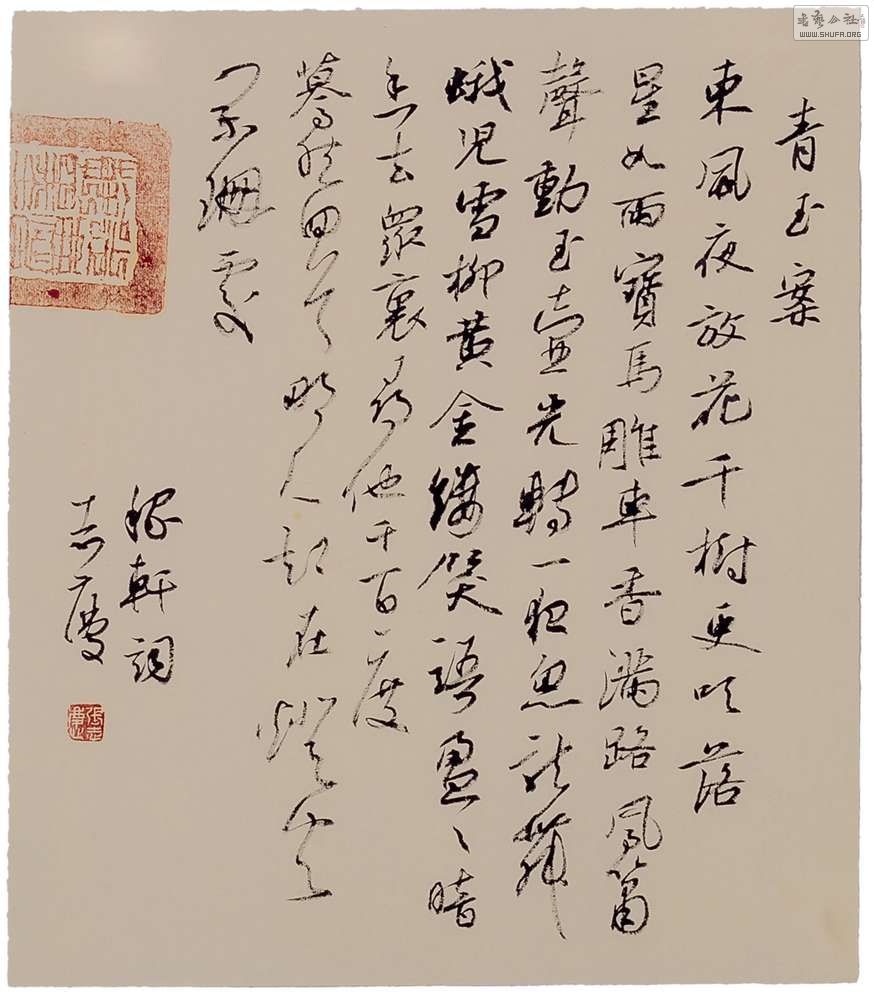 青玉案
東風夜放花千樹更吹落
星如雨寶馬雕車香滿路鳳簫
聲動玉壺光轉一夜魚龍舞
蛾兒雪柳黃金縷笑語盈〻暗
香去眾裏尋他千百度
驀然回首那人却在燈火
闌珊處
稼軒詞
志慶
書藝公社
WWW.SHUFA.ORG